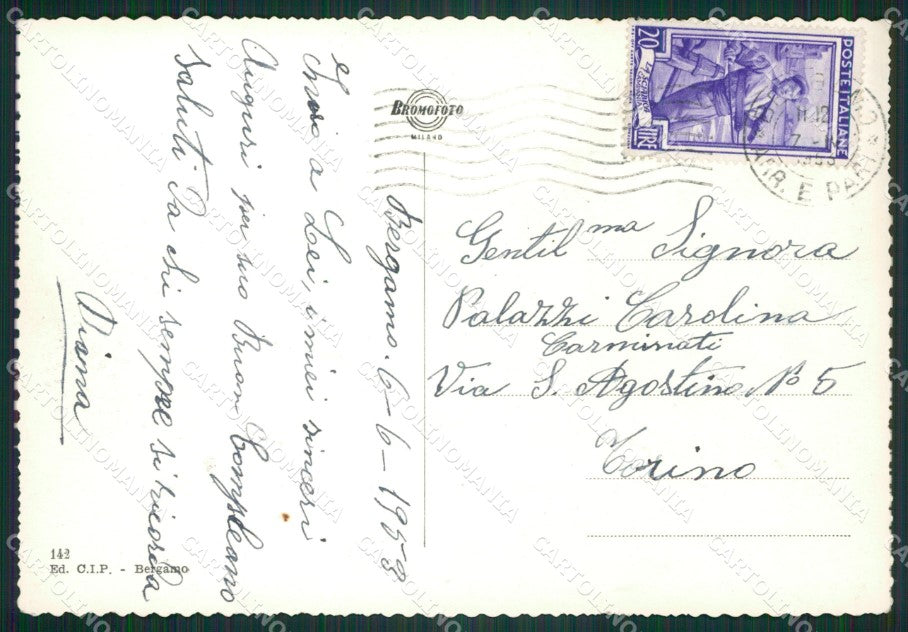 Bergamo. 6-6-1953
e
Invio a Lei, i miei sinceri
Auguri per suo Buon Compleano
saluti Da chi sempre si ricorda
Diana
BROMOFOTO
MILANO
POSTE ITALIANE
20
LIRE
ARR. E PART
Gentil ma Signora
Palazzi Carolina
Carminati
Via S. Agostino No 5
Torino
142
Ed. C.I.P. - Bergamo
CARTOLINOMANIA